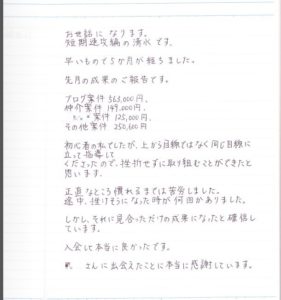 お世話になります。
短期速攻編の清水です。
早いもので5か月が経ちました。
先月の成果のご報告です。
ブログ案件 563,000円、
仲介案件 149,000円、
案件 125,000円、
その他案件 250,600円
初心者の私でしたが、上から目線ではなく同じ目線に
立って指導して
くださったので、挫折せずに取り組むことができたと
思います。
正直なところ慣れるまでは苦労しました。
途中、挫けそうになった時が何回かありました。
しかし、それに見合っただけの成果になったと確信し
ています。
入会して本当に良かったです。
さんに出会えたことに本当に感謝しています。